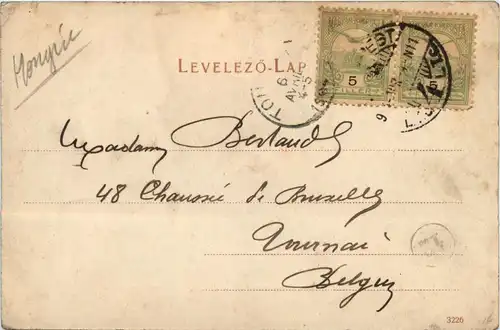 Hongrie
LEVELEZŐ-LAP
5
FILLÉR
Madame Bertaud
48 Chaussée de Bruxelles
Tournai
Belgique
3226